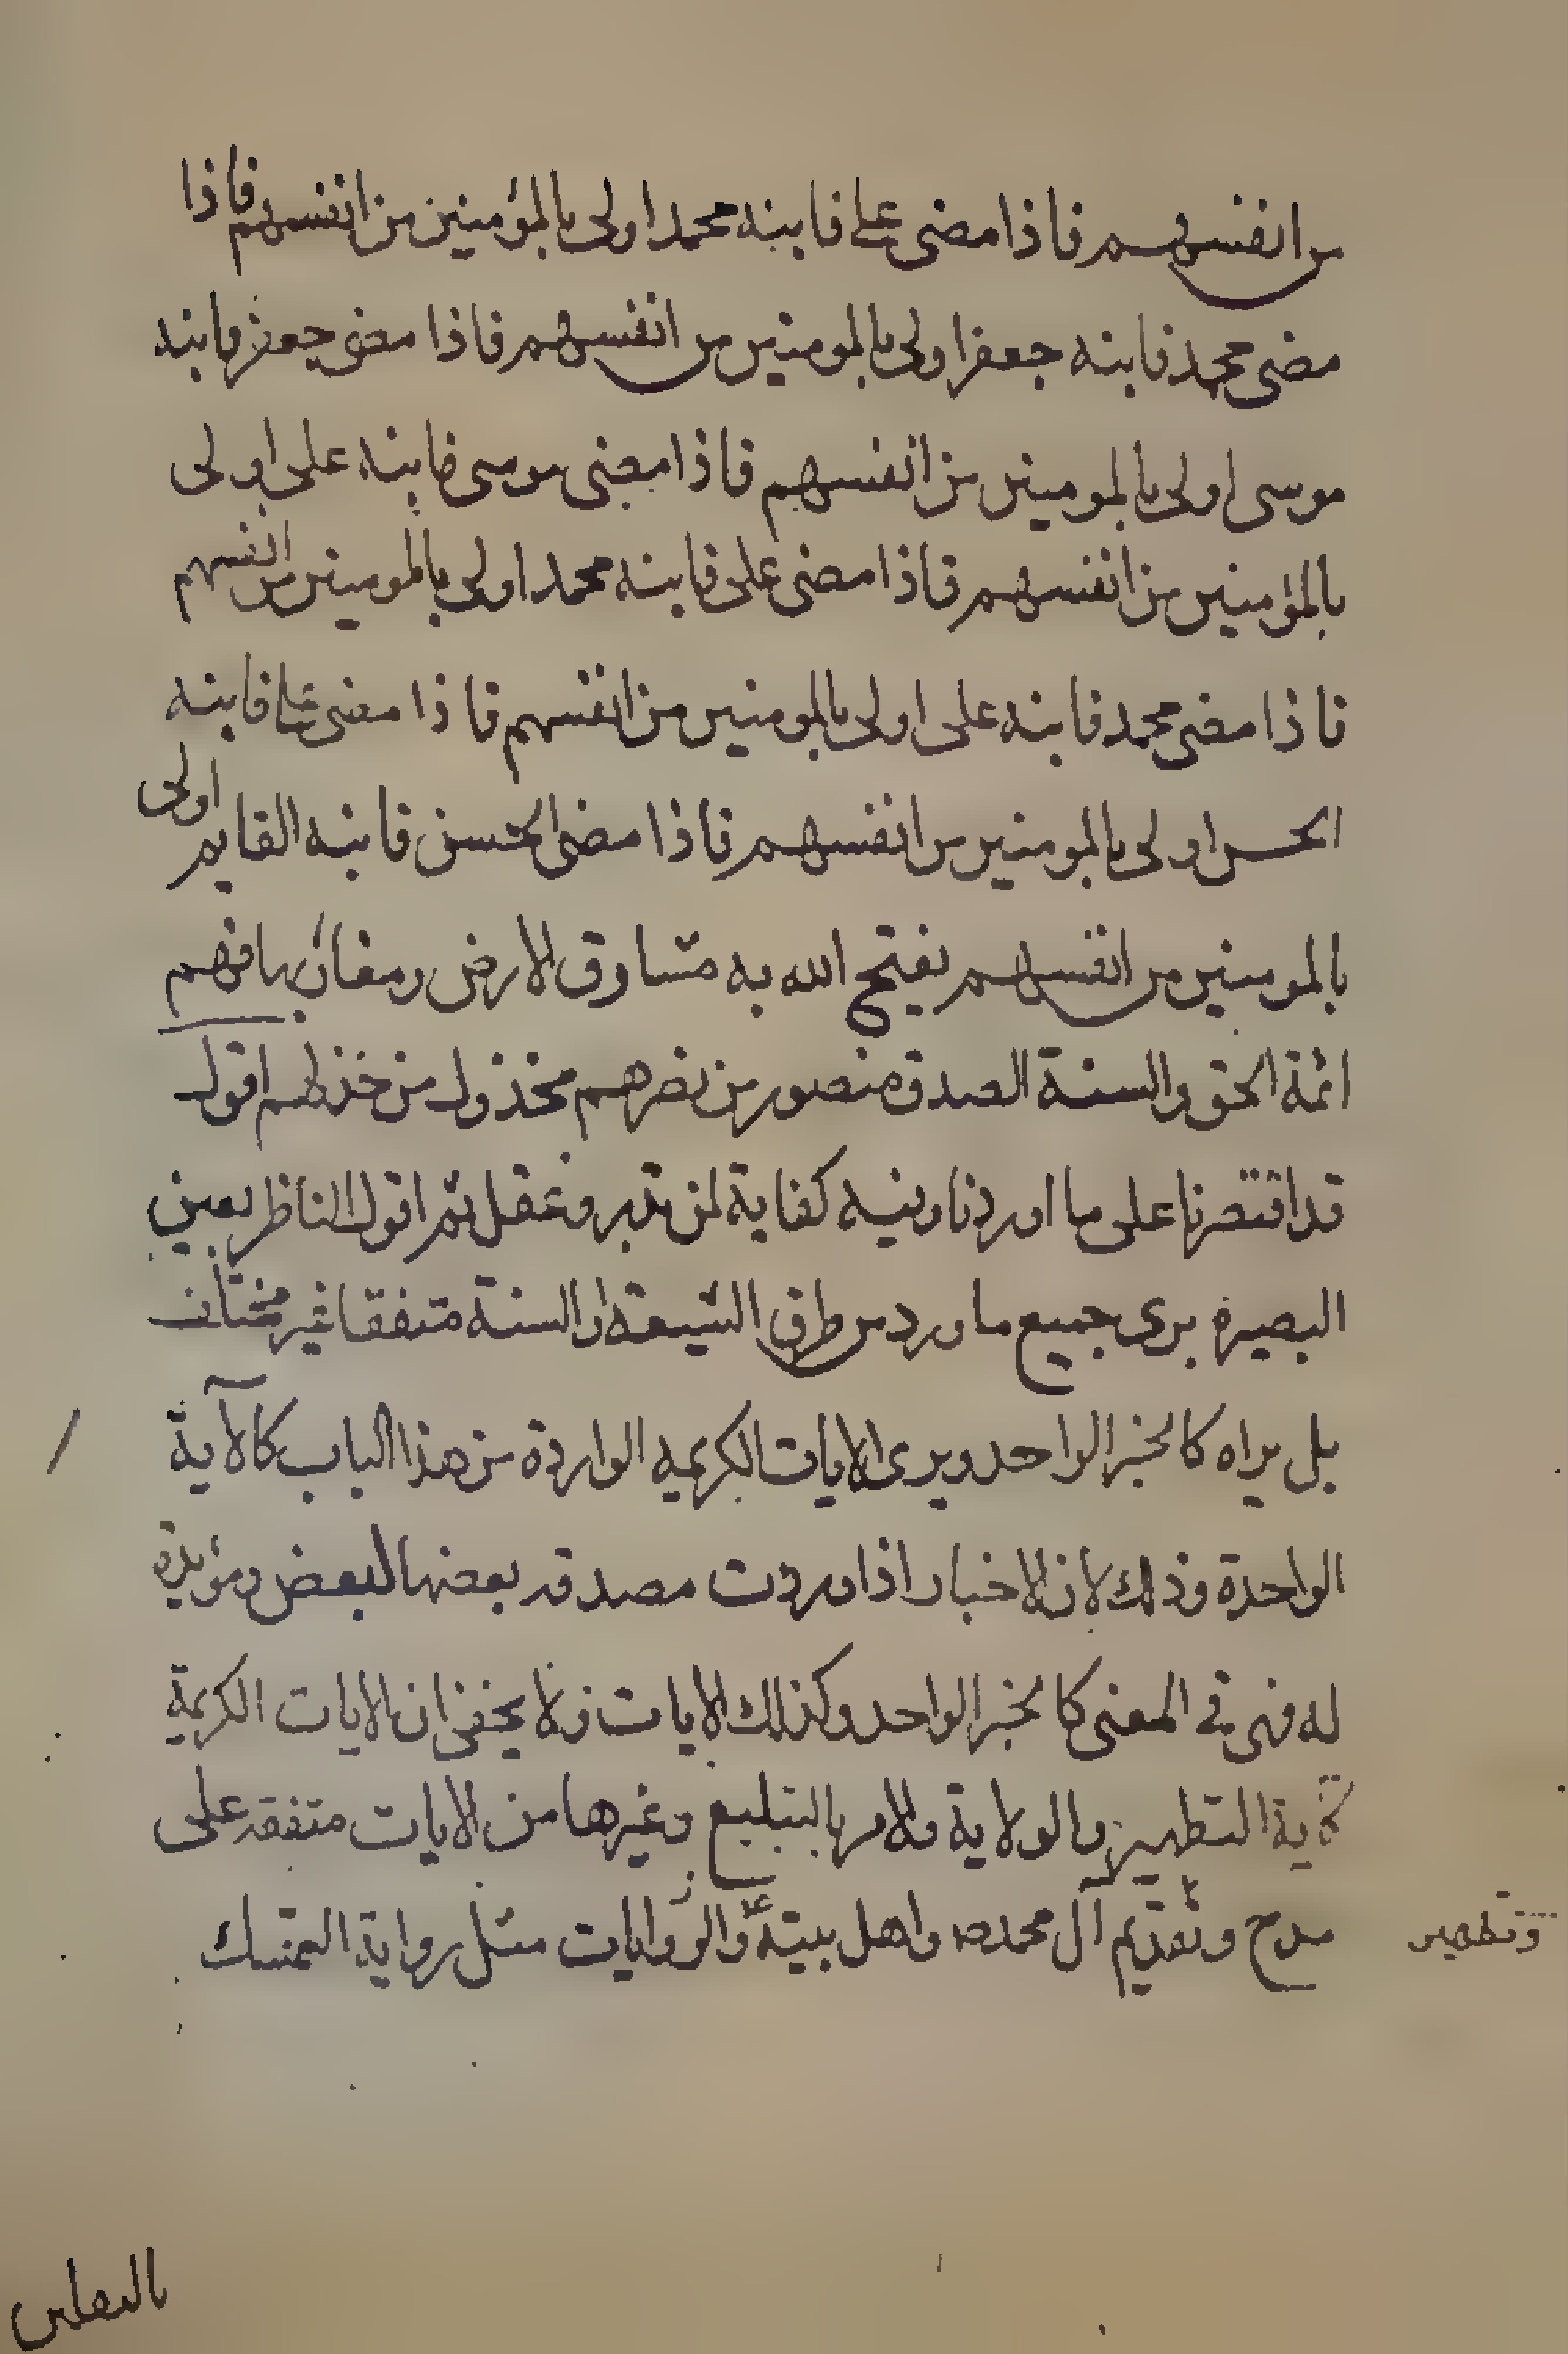 من انفسهم فاذا مضى على فابنه محمد اولى بالمؤمنين من انفسهم فاذا
مضى محمد فابنه جعفر اولى بالمومنين من انفسهم فاذا مضى جعفر فابنه
موسى اولى بالمومنين من انفسهم فاذا مضى موسى فابنه على اولى
بالمؤمنين من انفسهم فاذا مضى على فابنه محمد اولى بالمومنين من انفسهم
فاذا مضى محمد فابنه على اولى بالمومنين من انفسهم فاذا مضى على فابنه
الحسن اولى بالمومنين من انفسهم فاذا مضى الحسن فابنه القايم اولى
بالمومنين من انفسهم يفتح الله به مشارق الارض ومغاربها فهم
ائمة الحق والسنة الصدق منصور من نصرهم مخذول من خذلهم اقول
قد اقتصرنا على ما اوردنا وفيه كفاية لمن تدبر وعقل ثم اقول الناظر بعين
البصيرة يرى جميع ما ورد من طرق الشيعة والسنة متفقا غير مختلف
بل يراه كالخبر الواحد ويرى الايات الكريمه الواردة من هذا الباب كالآية
الواحدة وذلك لان الاخبار اذا وردت مصدقه بعضها لبعض ومؤيدة
له فهى في المعنى كالخبر الواحد وكذلك الايات ولا يخفى ان الايات الكريمة
كآية التطهير والولاية والامر بالتبليغ وغيرها من الايات متفقه على
مدح وتقديم آل محمد ص واهل بيته ع والروايات مثل رواية التمسك
وتطهير
بالثقلين